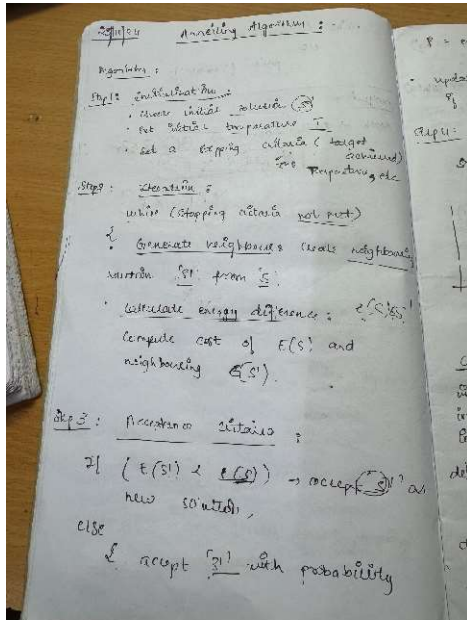 Annealing Algorithm :
Algorithm :
Step 1 : Initialisation :
• choose initial solution 'S'
• Set initial temperature T.
• Set a stopping criteria ( target
achieved)
Temperature, etc
Step2 : Iteration :
while (stopping criteria not met)
{
• Generate neighbours create neighbouring
solution 'S'' from 'S'.
• Calculate energy difference :
Compute cost of E(S) and
neighbouring E(S').
Step 3 : Acceptance criteria :
If ( E(S') < E(S)) → accept 'S'' as
new solution,
else
{ accept 'S'' with probability
• upda
Step 4 :